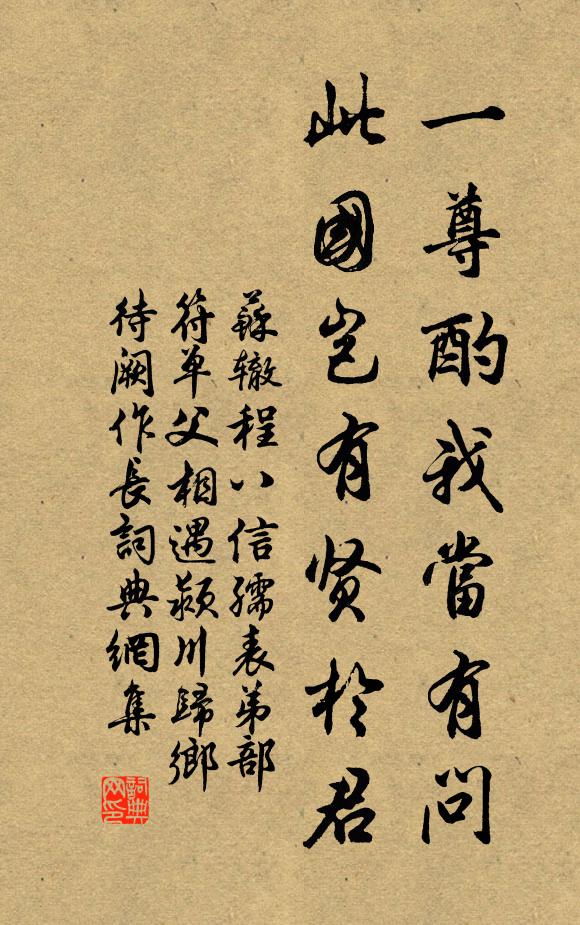 一尊酌我當有問
此國豈有賢於君
蘇轍程八信孺表弟部
符单父相遇潁川歸鄉
待闕作長詞典網集
詞典网印